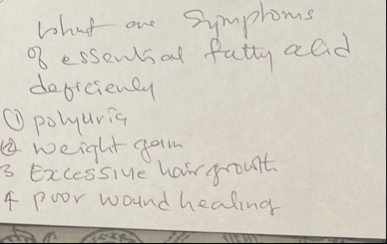 What are Symptoms
of essential fatty acid
deficiency
① polyuria
② weight gain
3 Excessive hair growth
4 poor wound healing